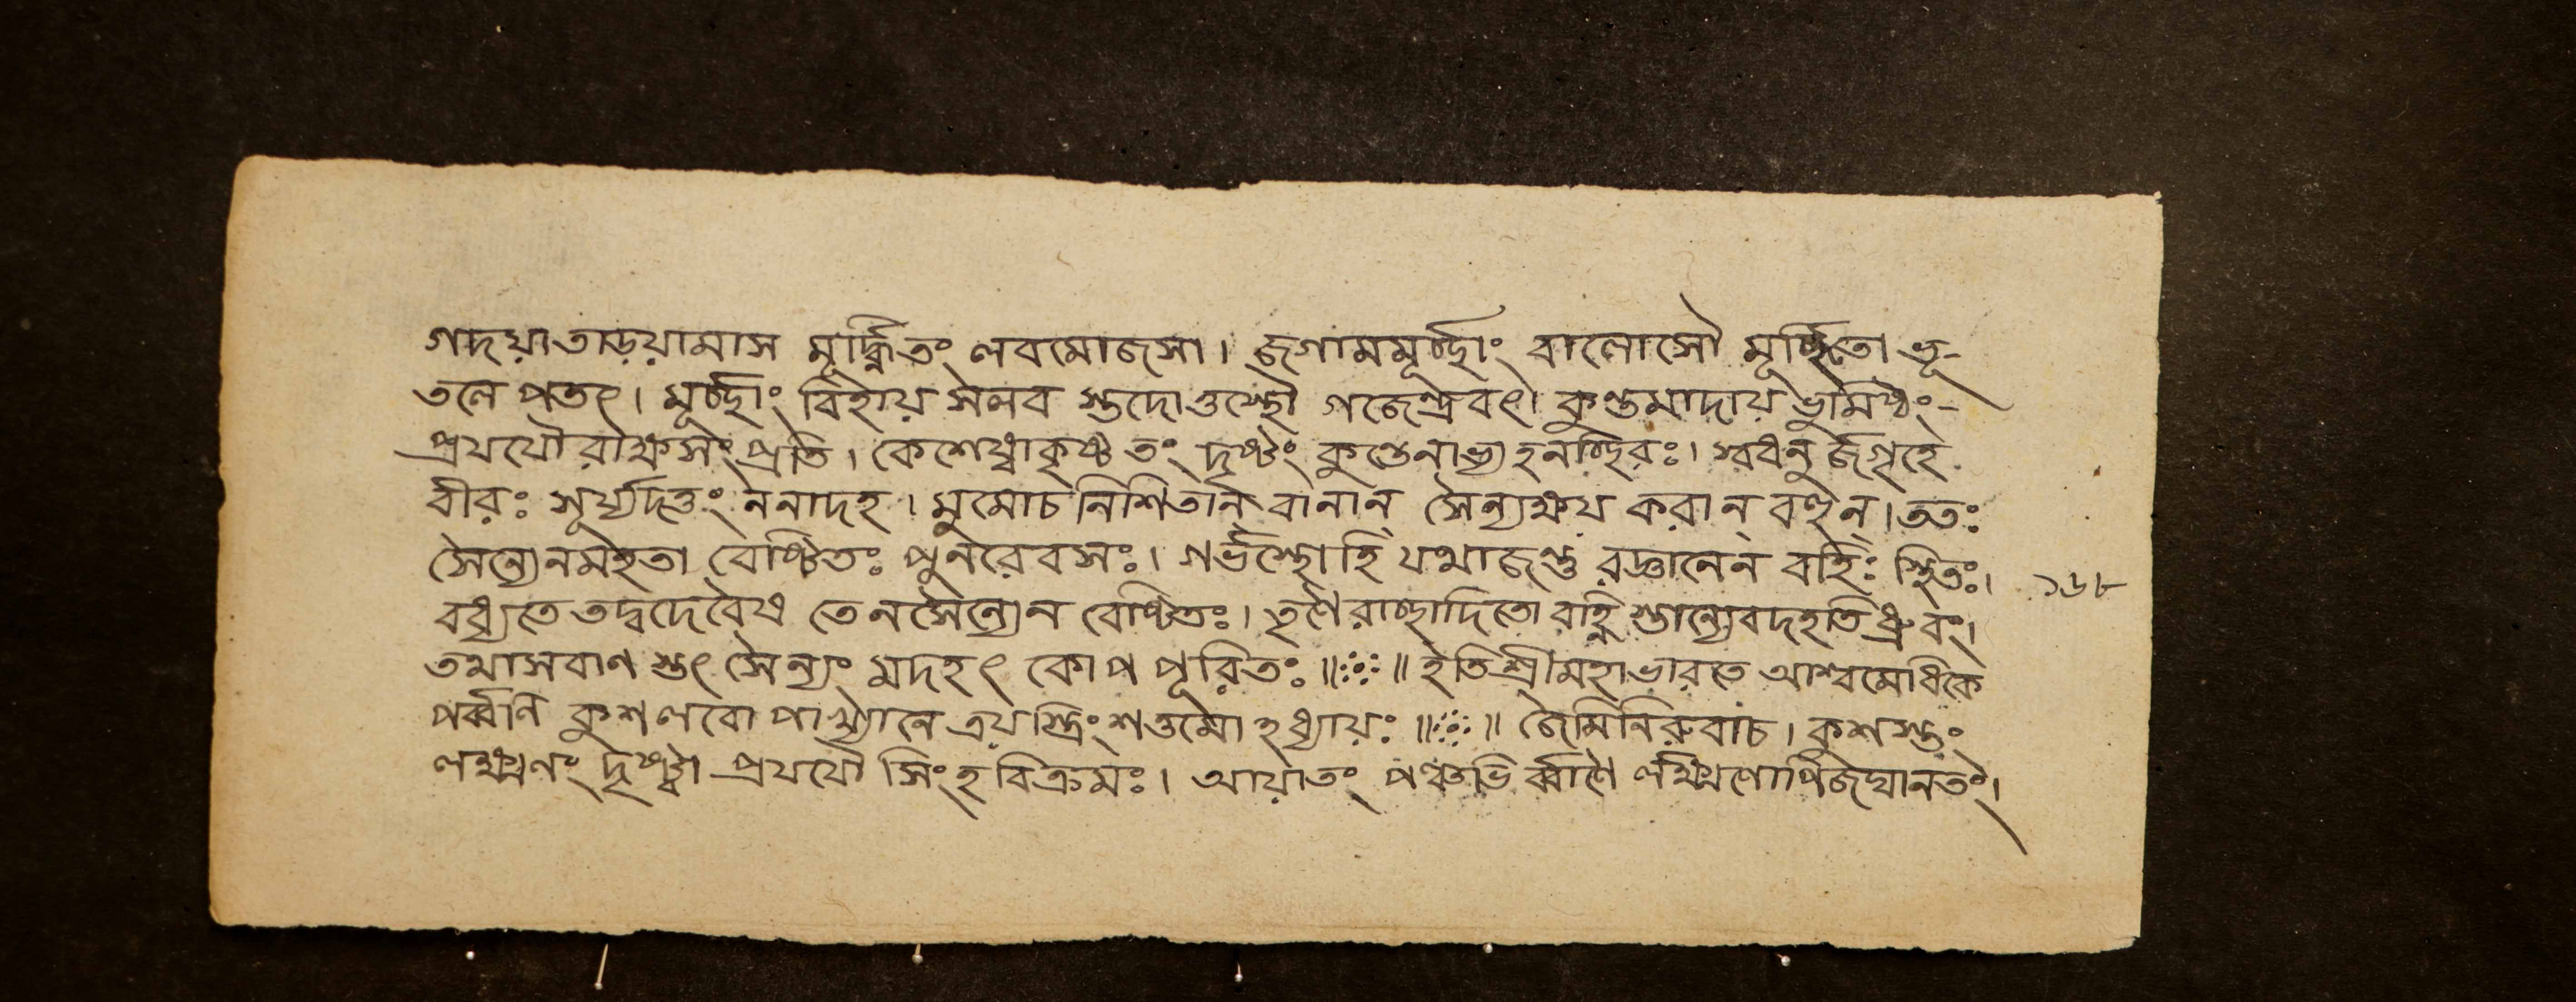 গদয়াতাড়য়ামাস মূর্দ্ধ্নিতং লবমোজসা। জগামমূর্চ্ছাং বালোসৌ মূর্চ্ছিতো ভূ-
তলে পতৎ। মূর্চ্ছাং বিহায় সলব স্তদোত্তস্থৌ গজেন্দ্রবৎ। কুণ্ডমাদায় ভূমিষ্ঠং-
প্রযযৌ রাক্ষসং প্রতি। কেশেষ্বাকৃষ্ট তং দুষ্টং কুণ্ডেনাভ্যহনচ্ছিরঃ। স্বধনু র্জগৃহে
বীরঃ সূর্য্যদত্তং ননাদহ। মুমোচ নিশিতান্ বানান্ সৈন্যক্ষয় করান্ বহূন্। ততঃ
সৈন্যেনমহতা বেষ্টিতঃ পুনরেবসঃ। গর্ভস্থোহি যথাজন্তু রজ্ঞানেন বহিঃ স্থিতঃ।
১৬৮
বধ্যতে তদ্বদেবৈষ তেনসৈন্যেন বেষ্টিতঃ। তৃণৈ রাচ্ছাদিতো বহ্নি স্তান্যেবদহতি ধ্রুবং।
তথাসবাণ স্তৎ সৈন্যং মদহৎ কোপ পূরিতঃ॥ ॥ ইতি শ্রীমহাভারতে আশ্বমেধিকে
পর্ব্বণি কুশলবো পাখ্যানে ত্রয়স্ত্রিংশত্তমো হধ্যায়ঃ॥ ॥ জৈমিনিরুবাচ। কুশস্তং
লক্ষ্মণং দৃষ্ট্বা প্রযযৌ সিংহ বিক্রমঃ। আয়াতং পঞ্চভি র্ব্বাণৈ র্লক্ষ্মণোপিজঘানতং।